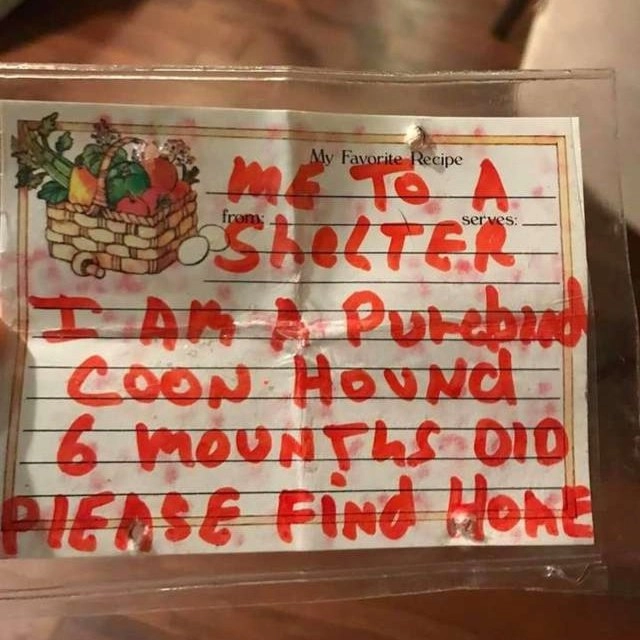 My Favorite Recipe
ME TO A
from: serves:
ShELTER
I AM A Purebird
COON HOUND
6 MOUNThS OlD
PlEASE FiNd HOME